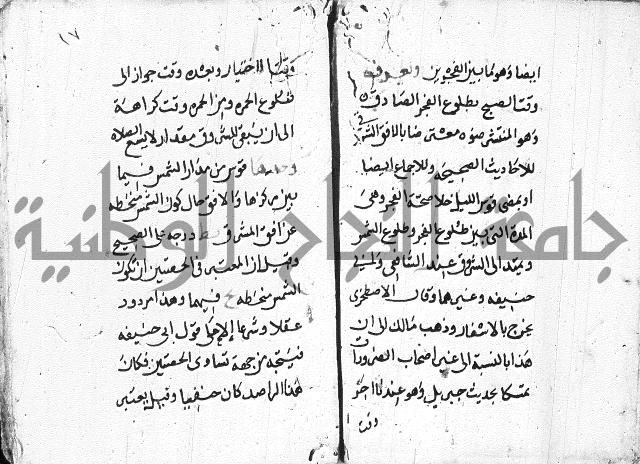 ايضا وهو لما بين الفجرين
وقت الصبح بطلوع الفجر الصادق
وهو المنتشر ضوءه معترضا بالافق الشرقي
للاحاديث الصحيحه وللاجماع ايضا
او بمضي قوس الليل خلا حصة الفجر وهي
المدة التي بين طلوع الفجر وطلوع الشمس
ويمتد الى الشروق عند الشافعي وابي
حنيفه وغيرهما وقال الاصطخري
يخرج بالاسفار وذهب مالك الى ان
هذا بالنسبة الى غير اصحاب الضرورات
تمسكا بحديث جبريل وهو عندنا اخر
وقت
١٧
وقت الاختيار وبعده وقت جواز الى
طلوع الحمره ومن الحمره وقت كراهة
الى ان يبقى للشروق مقدار لا يسع الصلاه
قوس من مدار الشمس فيما
بين مركزها والافق حال كون الشمس منحطه
عن افق المشرق درجه على الصحيح
وقيل ان المعتبر في الحصتين ان تكون
الشمس منحطه فيهما وهذا مردود
عقلا وشرعا الا على قول ابي حنيفه
فيتجه من جهة تساوي الحصتين فكان
هذا الراصد كان حنفيا وقيل يعتبر
جامعة النجاح الوطنية